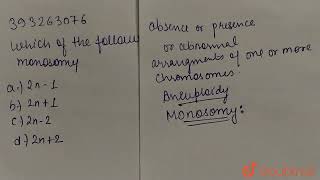 393263076
Which of the follow
monosomy
a.) 2n-1
b.) 2n+1
c.) 2n-2
d.) 2n+2
absence or presence
or abnormal
arrangments of one or more
chromosomes.
Aneuploidy
Monosomy: